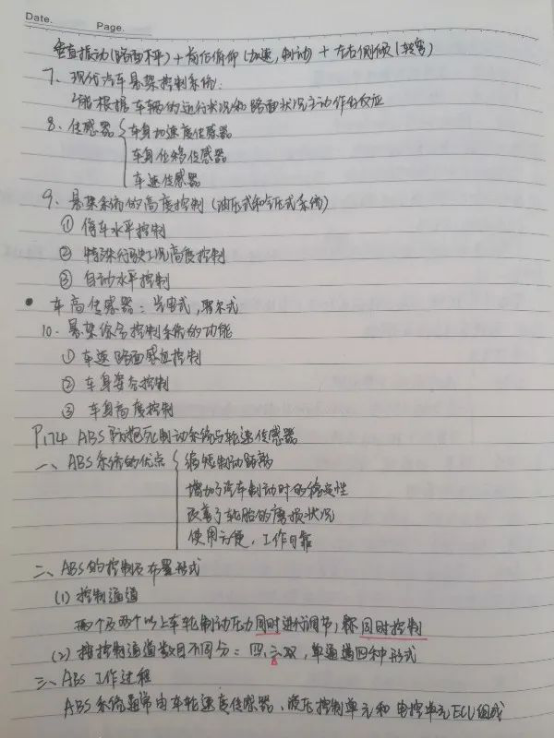 Date.
Page.
垂直振动(路面不平)+前后俯仰(加速,制动)+左右侧倾(转弯)
7、现代汽车悬架控制系统:
能根据车辆的运行状况和路面状况主动作出反应
8、传感器{车身加速度传感器
车身位移传感器
车速传感器
9、悬架系统的高度控制(油压式和气压式系统)
① 停车水平控制
② 特殊行驶工况高度控制
③ 自动水平控制
• 车高传感器:光电式,霍尔式
10、悬架综合控制系统的功能
① 车速路面感应控制
② 车身姿态控制
③ 车身高度控制
P174 ABS防抱死制动系统与轮速传感器
一、ABS系统的优点{缩短制动距离
增加了汽车制动时的稳定性
改善了轮胎的磨损状况
使用方便,工作可靠
二、ABS的控制及布置形式
(1) 控制通道
两个及两个以上车轮制动压力同时进行调节,称同时控制
(2) 按控制通道数目不同分:四,三,双,单通道四种形式
三、ABS工作过程
ABS系统通常由车轮速度传感器、液压控制单元和电控单元ECU组成